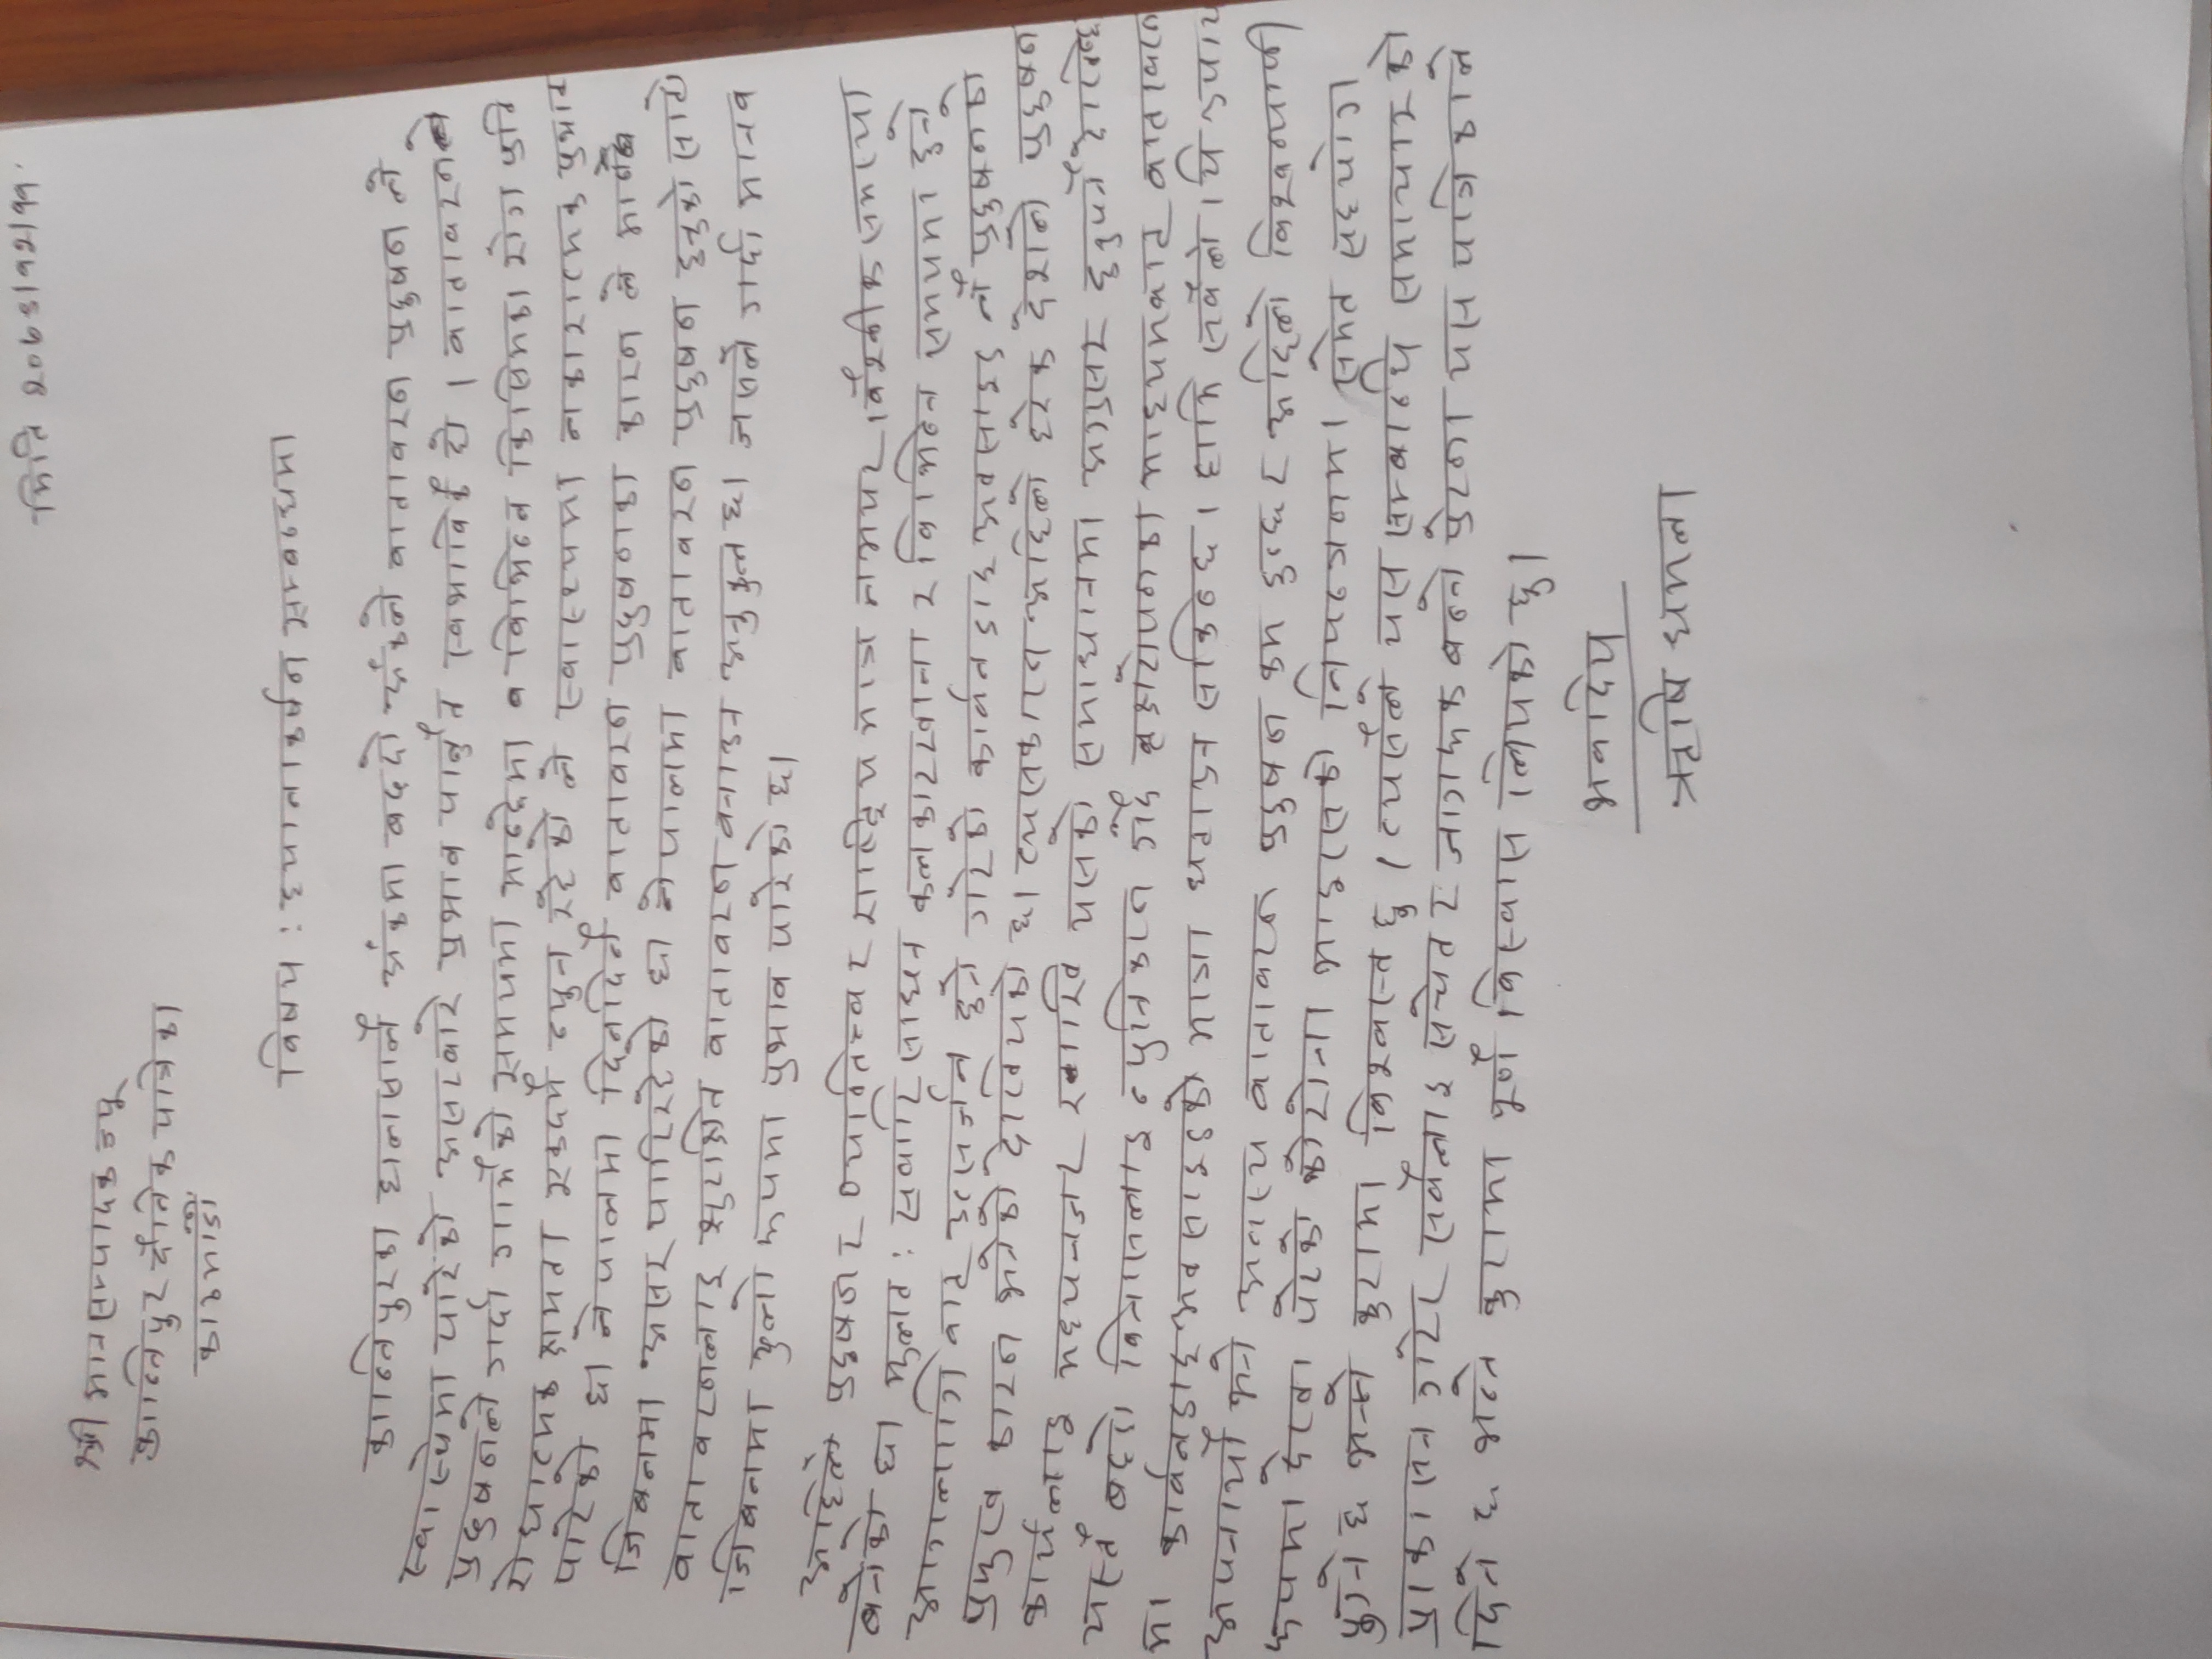 मिति २०७९।१२।११
श्री मान सम्पादक ज्यू
कान्तिपुर दैनिक पात्रिका
काठमाडौं
विषय : ध्यानाकर्षन सम्बन्धमा
कान्तिपुरका हालसालै अंकमा बढ्दो वातावरन प्रदुषन ले
स्वास्थेमा पारेको असरबारे प्रभाव पार्नुन त स्वभाविकै हो । वातावरन
प्रदुषनले गर्दा गार्मिको समयमा मान्छेमा व विभिन्न किसिमका रोग प्रति
रोधात्मक क्षामता एकदमै न्युन रहेको ले स्वास्थ्यमा नकारात्मक प्रभाव
पारेको छ। नेपालमा दिनदिनै वातावरन प्रदुषनका कारन ले मानव
जिबनमा असर पारिरहेको छ। नेपालमा वातावरन प्रदुषन हुनुको साटो
वातावरनलाइ सुराक्षित वातावरन बनाउन अनुकुल छ। जसले गर्दा मानव
जिबनमा ठुलो रुपमा प्रभाव पारेको छ।
अहिले प्रदुषन र व्यातित्व र राष्ट्रिय मात्र नभएर विश्वीक समस्या
बनेको छ। मुलत : सवारि साधन कलकारखाना र विभिन्न समयमा हुने
आगलागि बाट उत्सर्जन हुने गरेको कार्वनडाइअक्साइड नै प्रदुषनको
प्रमुख कारन भनेको देखियको छ। त्यसकारन अहिले हरेक देशले प्रदुषन
कार्यलाइ मध्यनजर राखि यसको समाधानमा अग्रसर हुनुपर्ने देखिन्छ
यस्तै बढ्दो विनासलाइ न्युनिकरन गर्दै बृक्षरोपनका माध्यमबाट वातावरन
मा कार्वनडाइअक्साइडको मात्रा घटाउन सकिन्छ । हामि सबैले यि उपाय
अपनायौं भने अवस्य वातावरन प्रदुषन कम हुन्छ र अहिले विश्वव्यापी
रुपमा देखा परेको कोरोना भाइरसको नियन्त्रनमा समेत सहयोग
पुग्ने छ भन्ने कुरामा विश्वस्त छु । त्यसैले यस सम्बान्धि समाचार को
प्राकासन गरेर सबैलाइ सचेत र जागरुक बन्ने प्रेरना यस पात्रिकाले
दिने छ भन्ने कुरामा पूर्ण विस्वास लियको छु।
भवादिय
ऋषि धमला